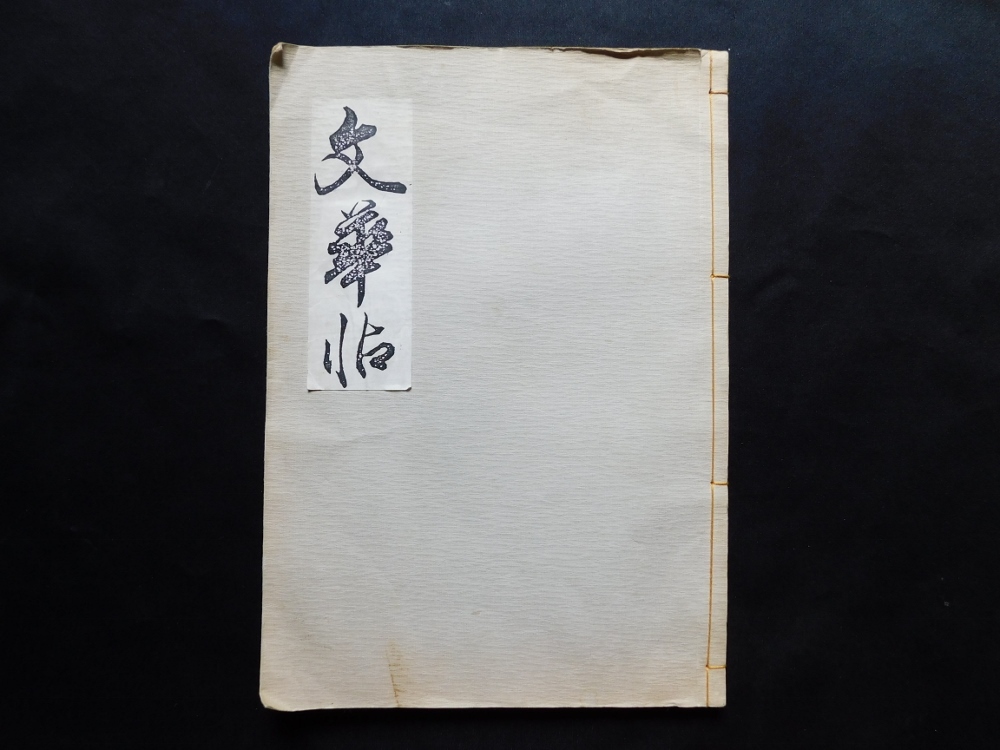 文華帖